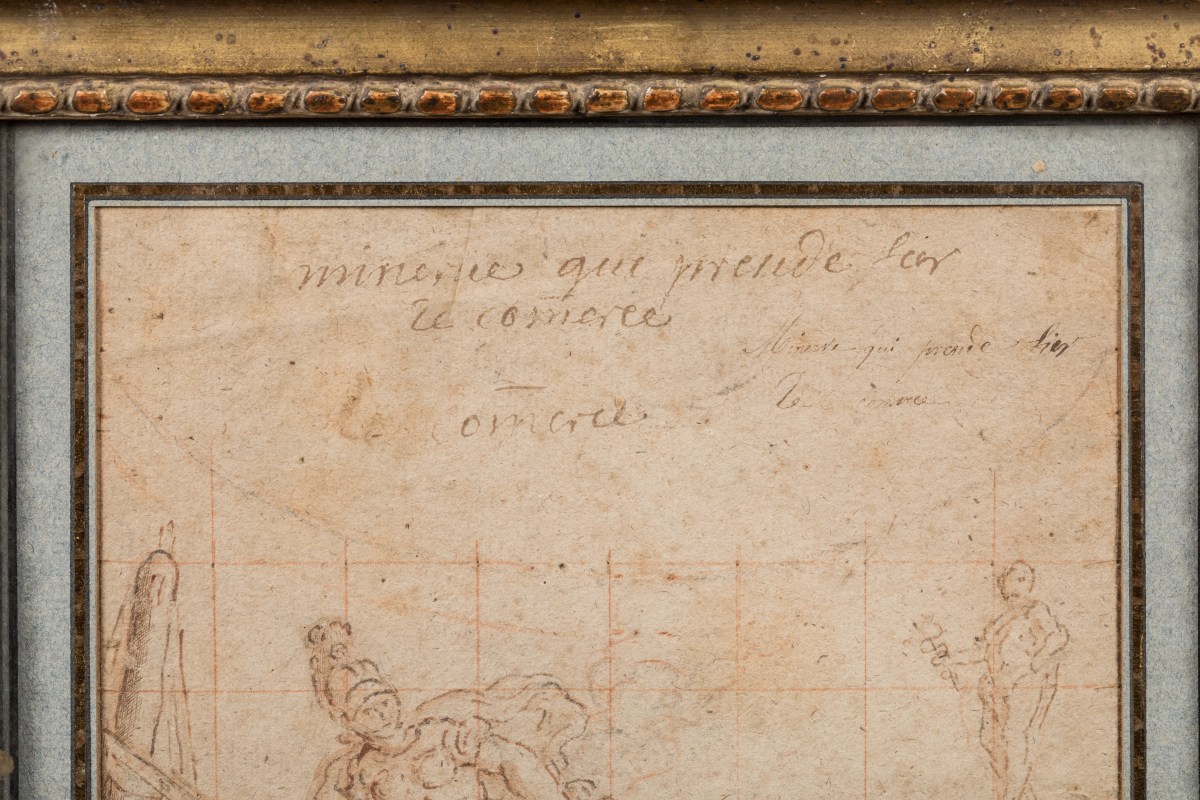 minerue qui prende lier
le com̅erce
Minere qui prende lier
le
om̅erce